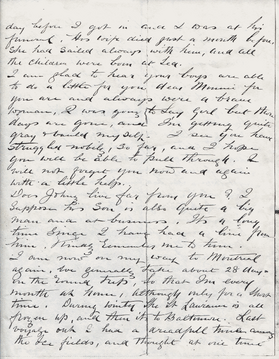 day before I got in and I was at his
funeral. His wife died just a month before.
She had sailed always with him, and all
the children were born at Sea.
I am glad to hear your boys are able
to do a little for you, dear Minnie for
you are and always were a brave
woman, I was going to say Girl but those
days are gone, and I'm going quite
gray & bald myself. I see you have
struggled nobly, so far, and I hope
you will be able to pull through. I
will not forget you now and again
with a little help.
Does John live far from you? I
suppose his Son is also quite a big
man and in business, its a long
time since I have had a line from
him, kindly remember me to him.
I am now on my way to Montreal
again, we generally take about 28 days
on the round trips, so that I'm every
month at home, although only for a short
time. During winter the St Lawrence is all
frozen up, and then its to Baltimore. Last
voyage out I had a dreadful time among
the Ice fields, and thought at one time